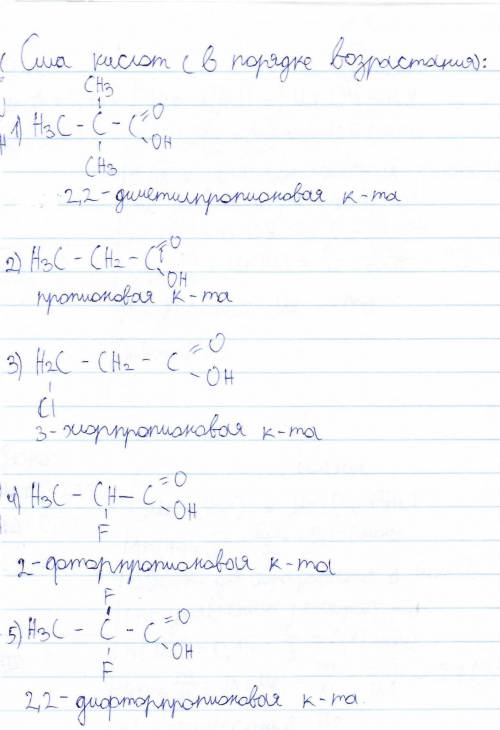 Сила кислот (в порядке возрастания):
CH3
1) H3C - C - C =O
- OH
CH3
2,2-диметилпропионовая к-та
2) H3C - CH2 - C =O
- OH
пропионовая к-та
3) H2C - CH2 - C =O
- OH
Cl
3-хлорпропионовая к-та
4) H3C - CH - C =O
- OH
F
2-фторпропионовая к-та
F
5) H3C - C - C =O
- OH
F
2,2-дифторпропионовая к-та.